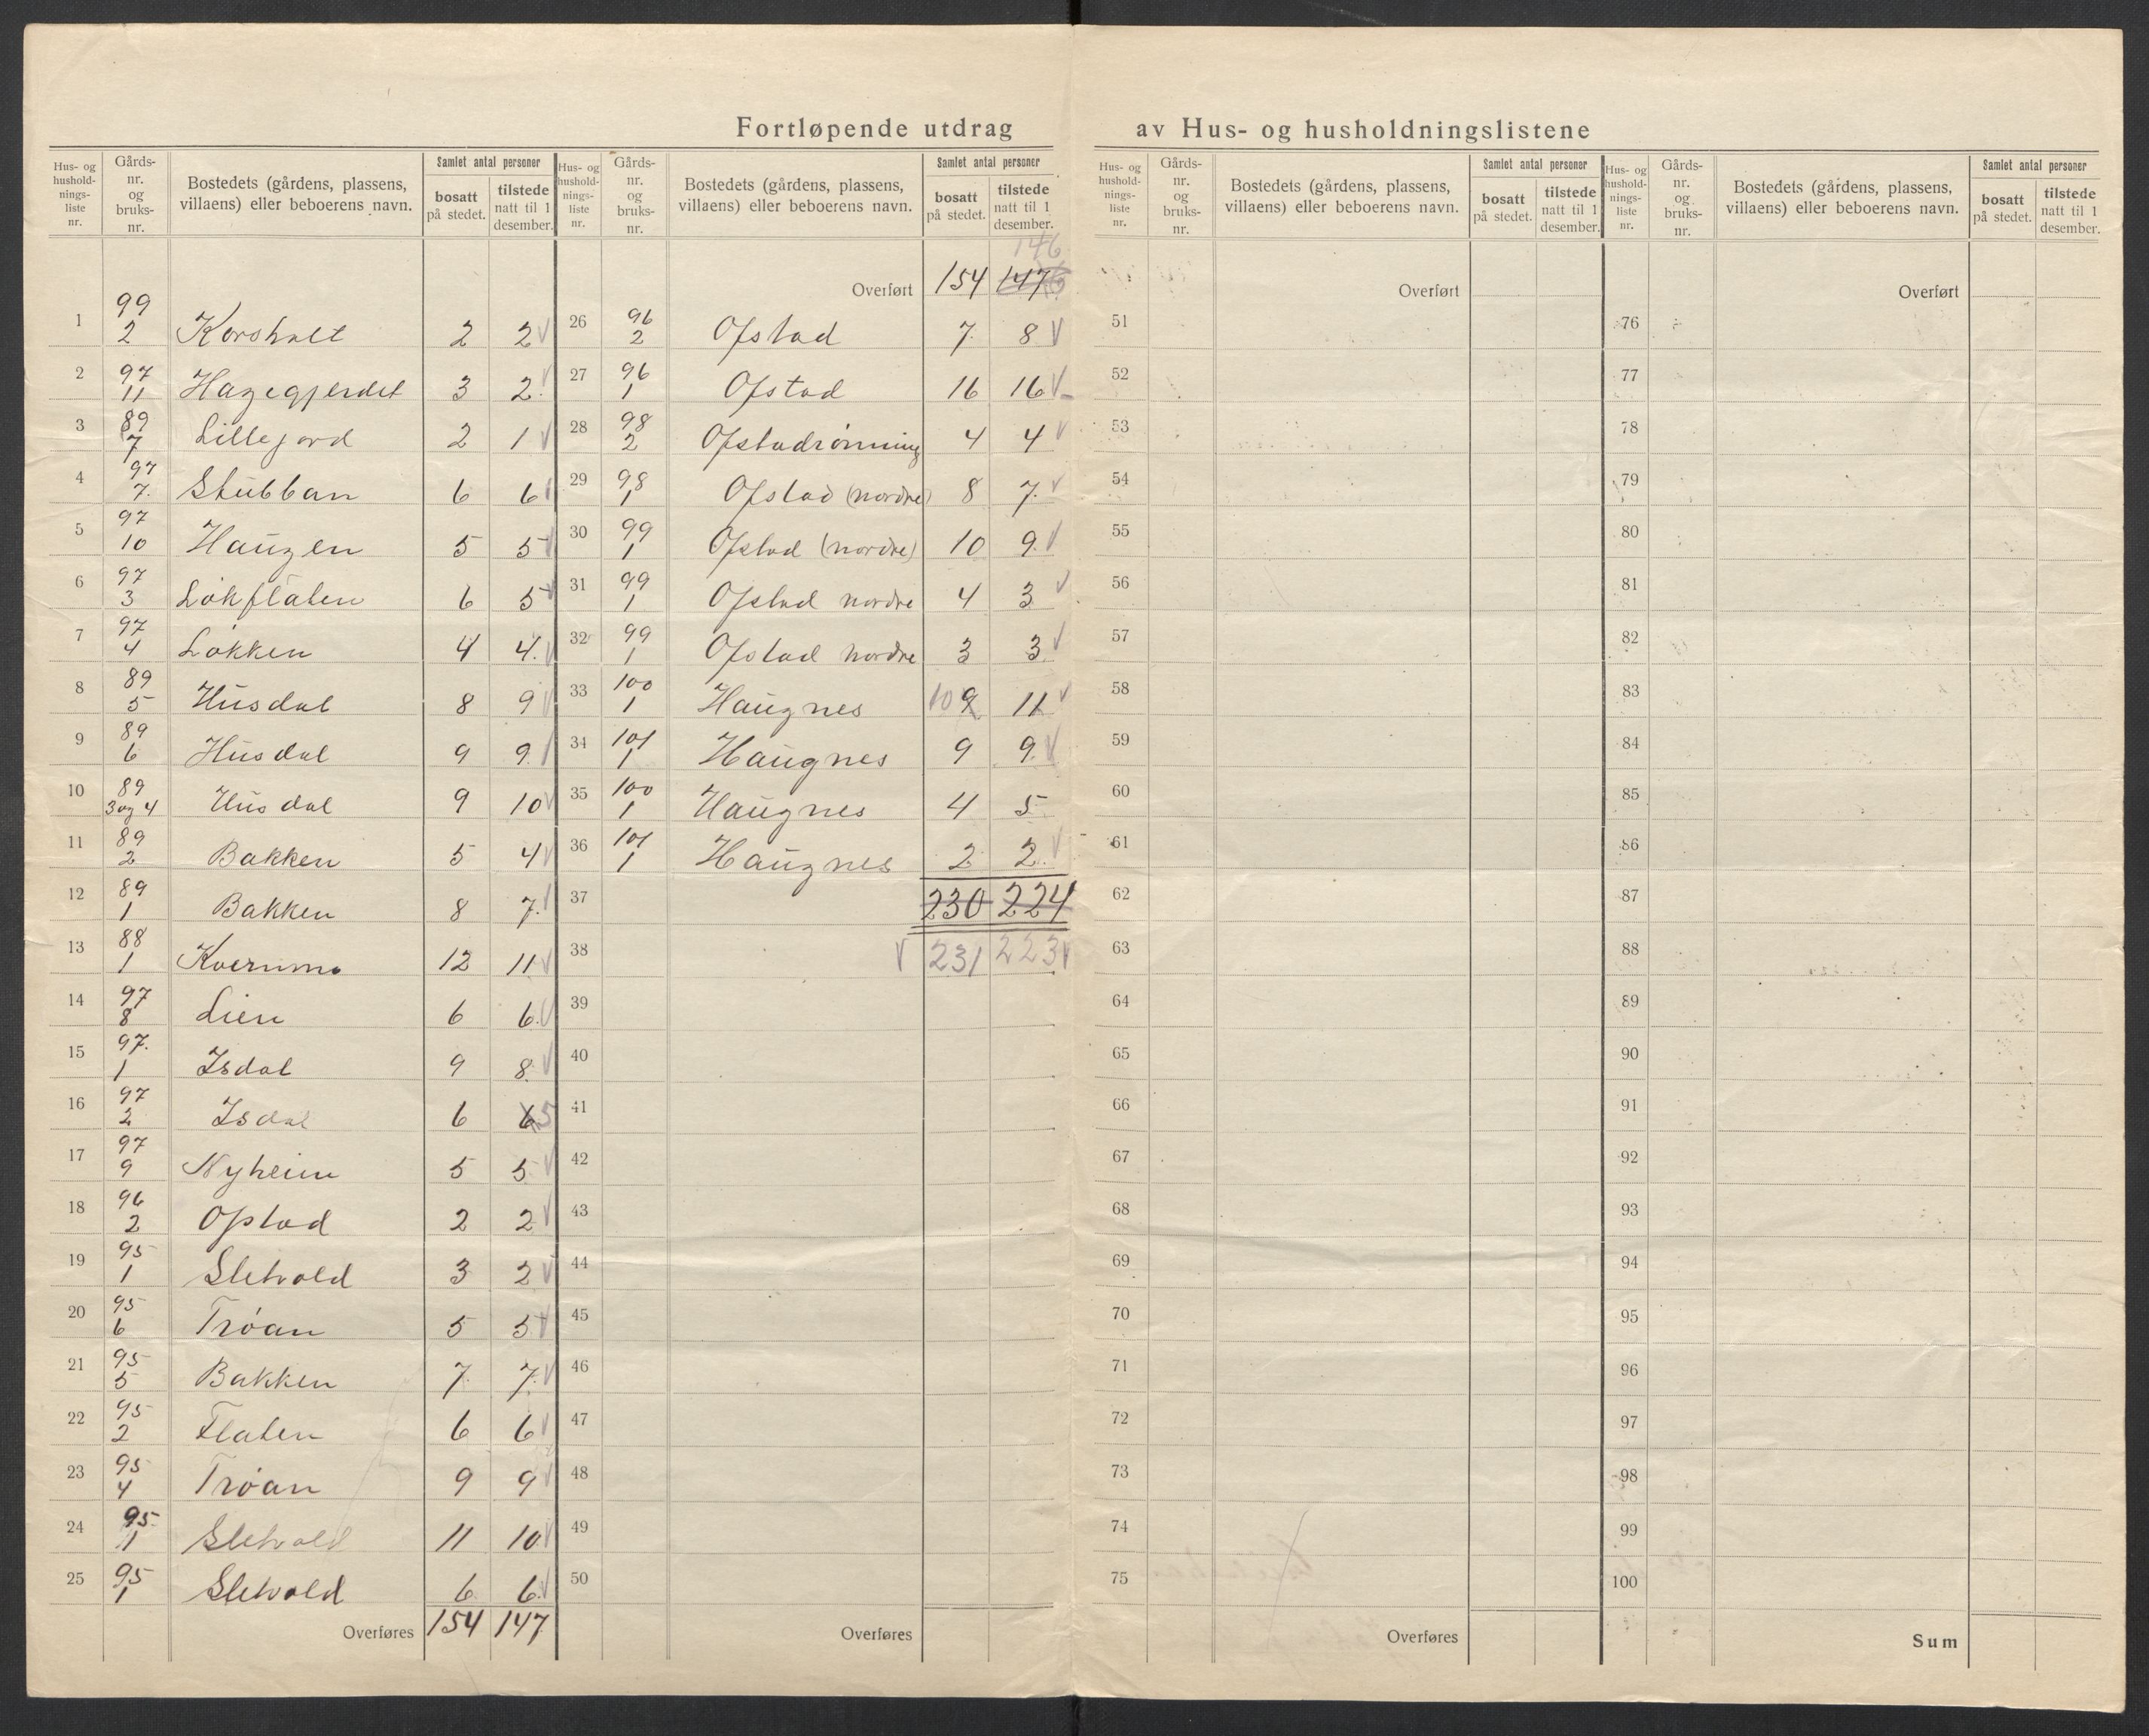 Fortløpende utdrag av Hus- og husholdningslistene
Hus- og husholdnings-liste nr. | Gårds-nr. og bruks-nr. | Bostedets (gårdens, plassens, villaens) eller beboerens navn. | Samlet antal personer bosatt på stedet. | tilstede natt til 1 desember.
1 99 2 Korsholt 2 2 V
2 97 11 Hagegjerdet 3 2 V
3 89 7 Lillejord 2 1 V
4 97 7. Stubban 6 6 V
5 97 10 Haugen 5 5 V
6 97 3 Løkflaten 6 5 V
7 97 4 Løkken 4 4. V
8 89 5 Husdal 8 9 V
9 89 6 Husdal 9 9 V
10 89 3 og 4 Husdal 9 10 V
11 89 2 Bakken 5 4 V
12 89 1 Bakken 8 7. V
13 88 1 Kvernmo 12 11 V
14 97 8 Lien 6 6. V
15 97. 1 Isdal 9 8. V
16 97 2 Isdal 6 6 5
17 97 9 Nyheim 5 5 V
18 96 2 Ofstad 2 2 V
19 95 1 Sletvold 3 2 V
20 95 6 Trøan 5 5 V
21 95 5 Bakken 7. 7. V
22 95 2 Flaten 6 6 V
23 95 4 Trøan 9 9 V
24 95 1 Sletvold 11 10 V
25 95 1 Sletvold 6 6. V
Overføres 154 147
Hus- og husholdnings-liste nr. | Gårds-nr. og bruks-nr. | Bostedets (gårdens, plassens, villaens) eller beboerens navn. | Samlet antal personer bosatt på stedet. | tilstede natt til 1 desember.
146
Overført 154 147
26 96 2 Ofstad 7. 8 V
27 96 1 Ofstad 16 16 V
28 98 2 Ofstadrønning 4 4 V
29 98 1 Ofstad (nordre) 8 7. V
30 99 1 Ofstad (nordre) 10 9. V
31 99 1 Ofstad nordre 4 3 V
32 99 1 Ofstad nordre 3 3 V
33 100 1 Haugnes 10 9 11 V
34 101 1 Haugnes 9 9. V
35 100 1 Haugnes 4 5
36 101 1 Haugnes 2 2. V
37 230 224
38 V 231 223 V
39
40
41
42
43
44
45
46
47
48
49
50
Overføres
Hus- og husholdnings-liste nr. | Gårds-nr. og bruks-nr. | Bostedets (gårdens, plassens, villaens) eller beboerens navn. | Samlet antal personer bosatt på stedet. | tilstede natt til 1 desember.
Overført
51
52
53
54
55
56
57
58
59
60
61
62
63
64
65
66
67
68
69
70
71
72
73
74
75
Overføres
Hus- og husholdnings-liste nr. | Gårds-nr. og bruks-nr. | Bostedets (gårdens, plassens, villaens) eller beboerens navn. | Samlet antal personer bosatt på stedet. | tilstede natt til 1 desember.
Overført
76
77
78
79
80
81
82
83
84
85
86
87
88
89
90
91
92
93
94
95
96
97
98
99
100
Sum